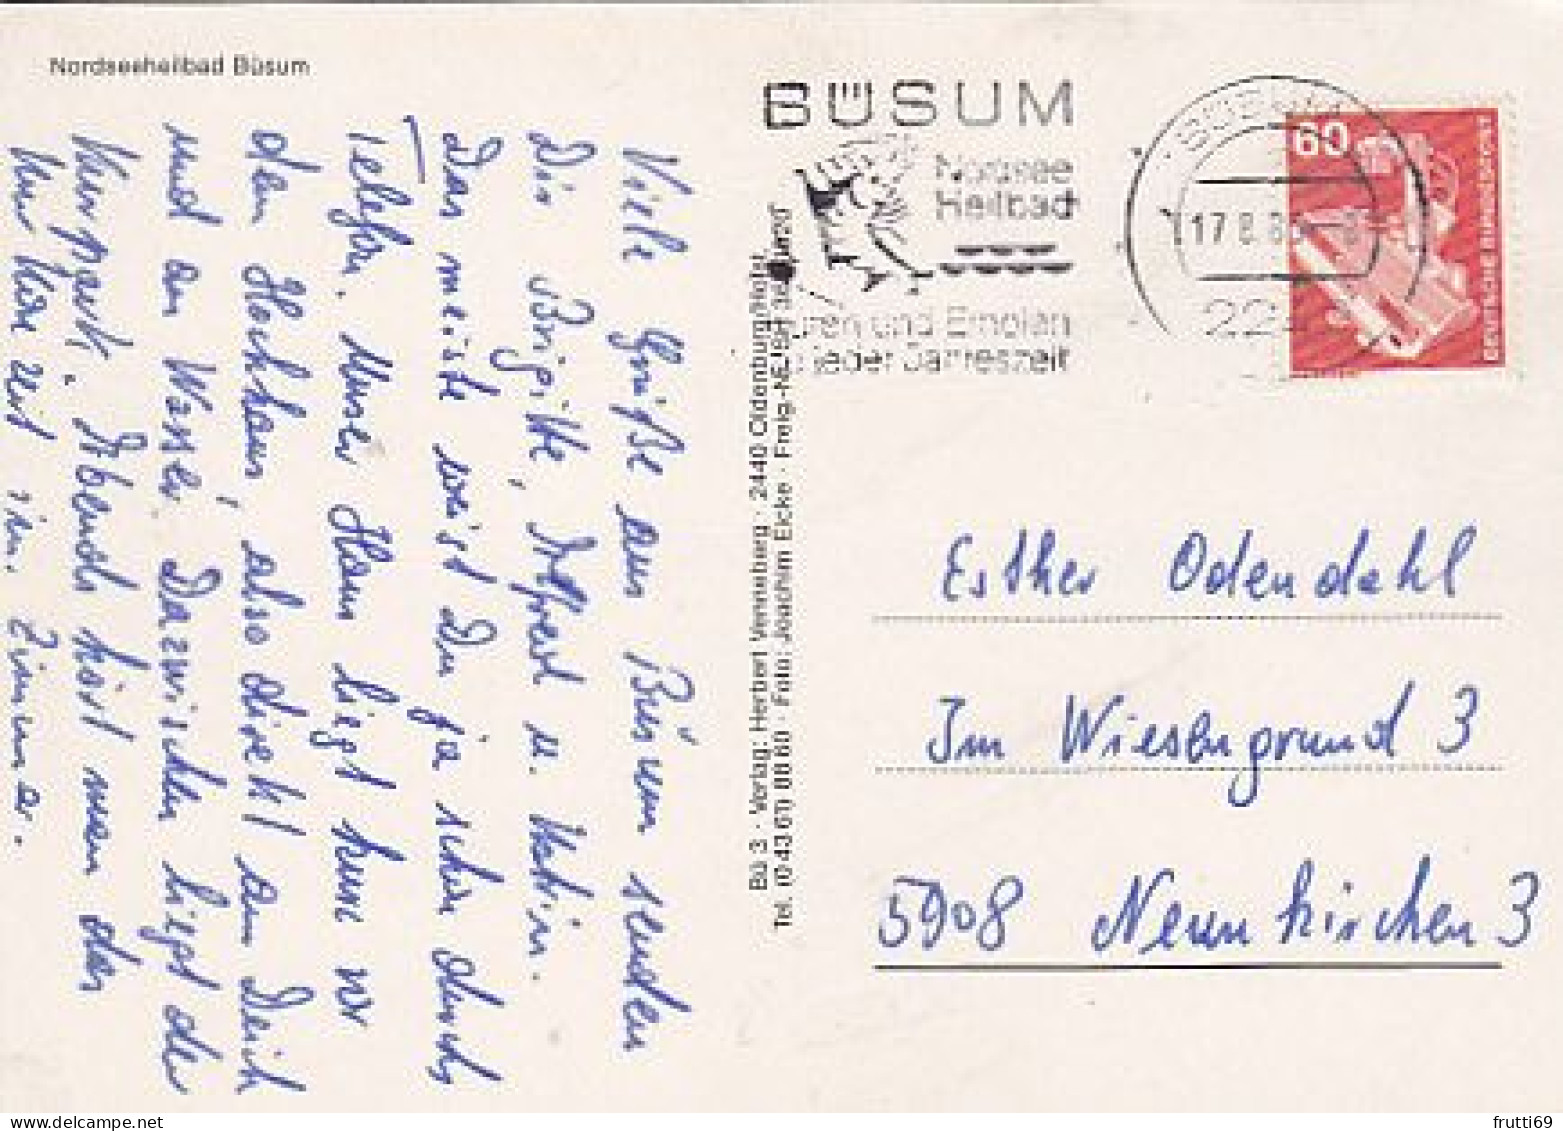 Nordseeheilbad Büsum
Viele Grüße aus Büsum senden
Dir Brigitte, Alfred u. Katrin.
Das meiste weist Du ja schon durchs
Telefon. Unser Haus liegt kurz vor
den Hochhaus, also direkt am Deich
und am Wasser. Dazwischen liegt der
Kurpark. Abends hört man das
Meer bis ins Zimmer.
BÜSUM
Nordsee
Heilbad
Kuren und Erholen
zu jeder Jahreszeit
BÜSUM
17.8.8
224
60
DEUTSCHE BUNDESPOST
Bü 3 · Verlag: Herbert Venneberg · 2440 Oldenburg/Holst.
Tel. (0 43 61) 08 60 · Foto: Joachim Eicke · Freig.-Nr. SH
Esther Odendahl
Im Wiesengrund 3
5908 Neunkirchen 3
frutti69